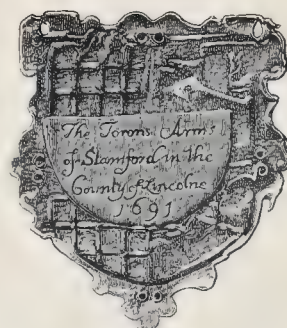 The Torons Arms
of Stamford in the
County of Lincolne
1691